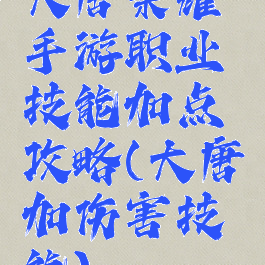 大唐荣耀
手游职业
技能加点
攻略(大唐
加伤害技
能)